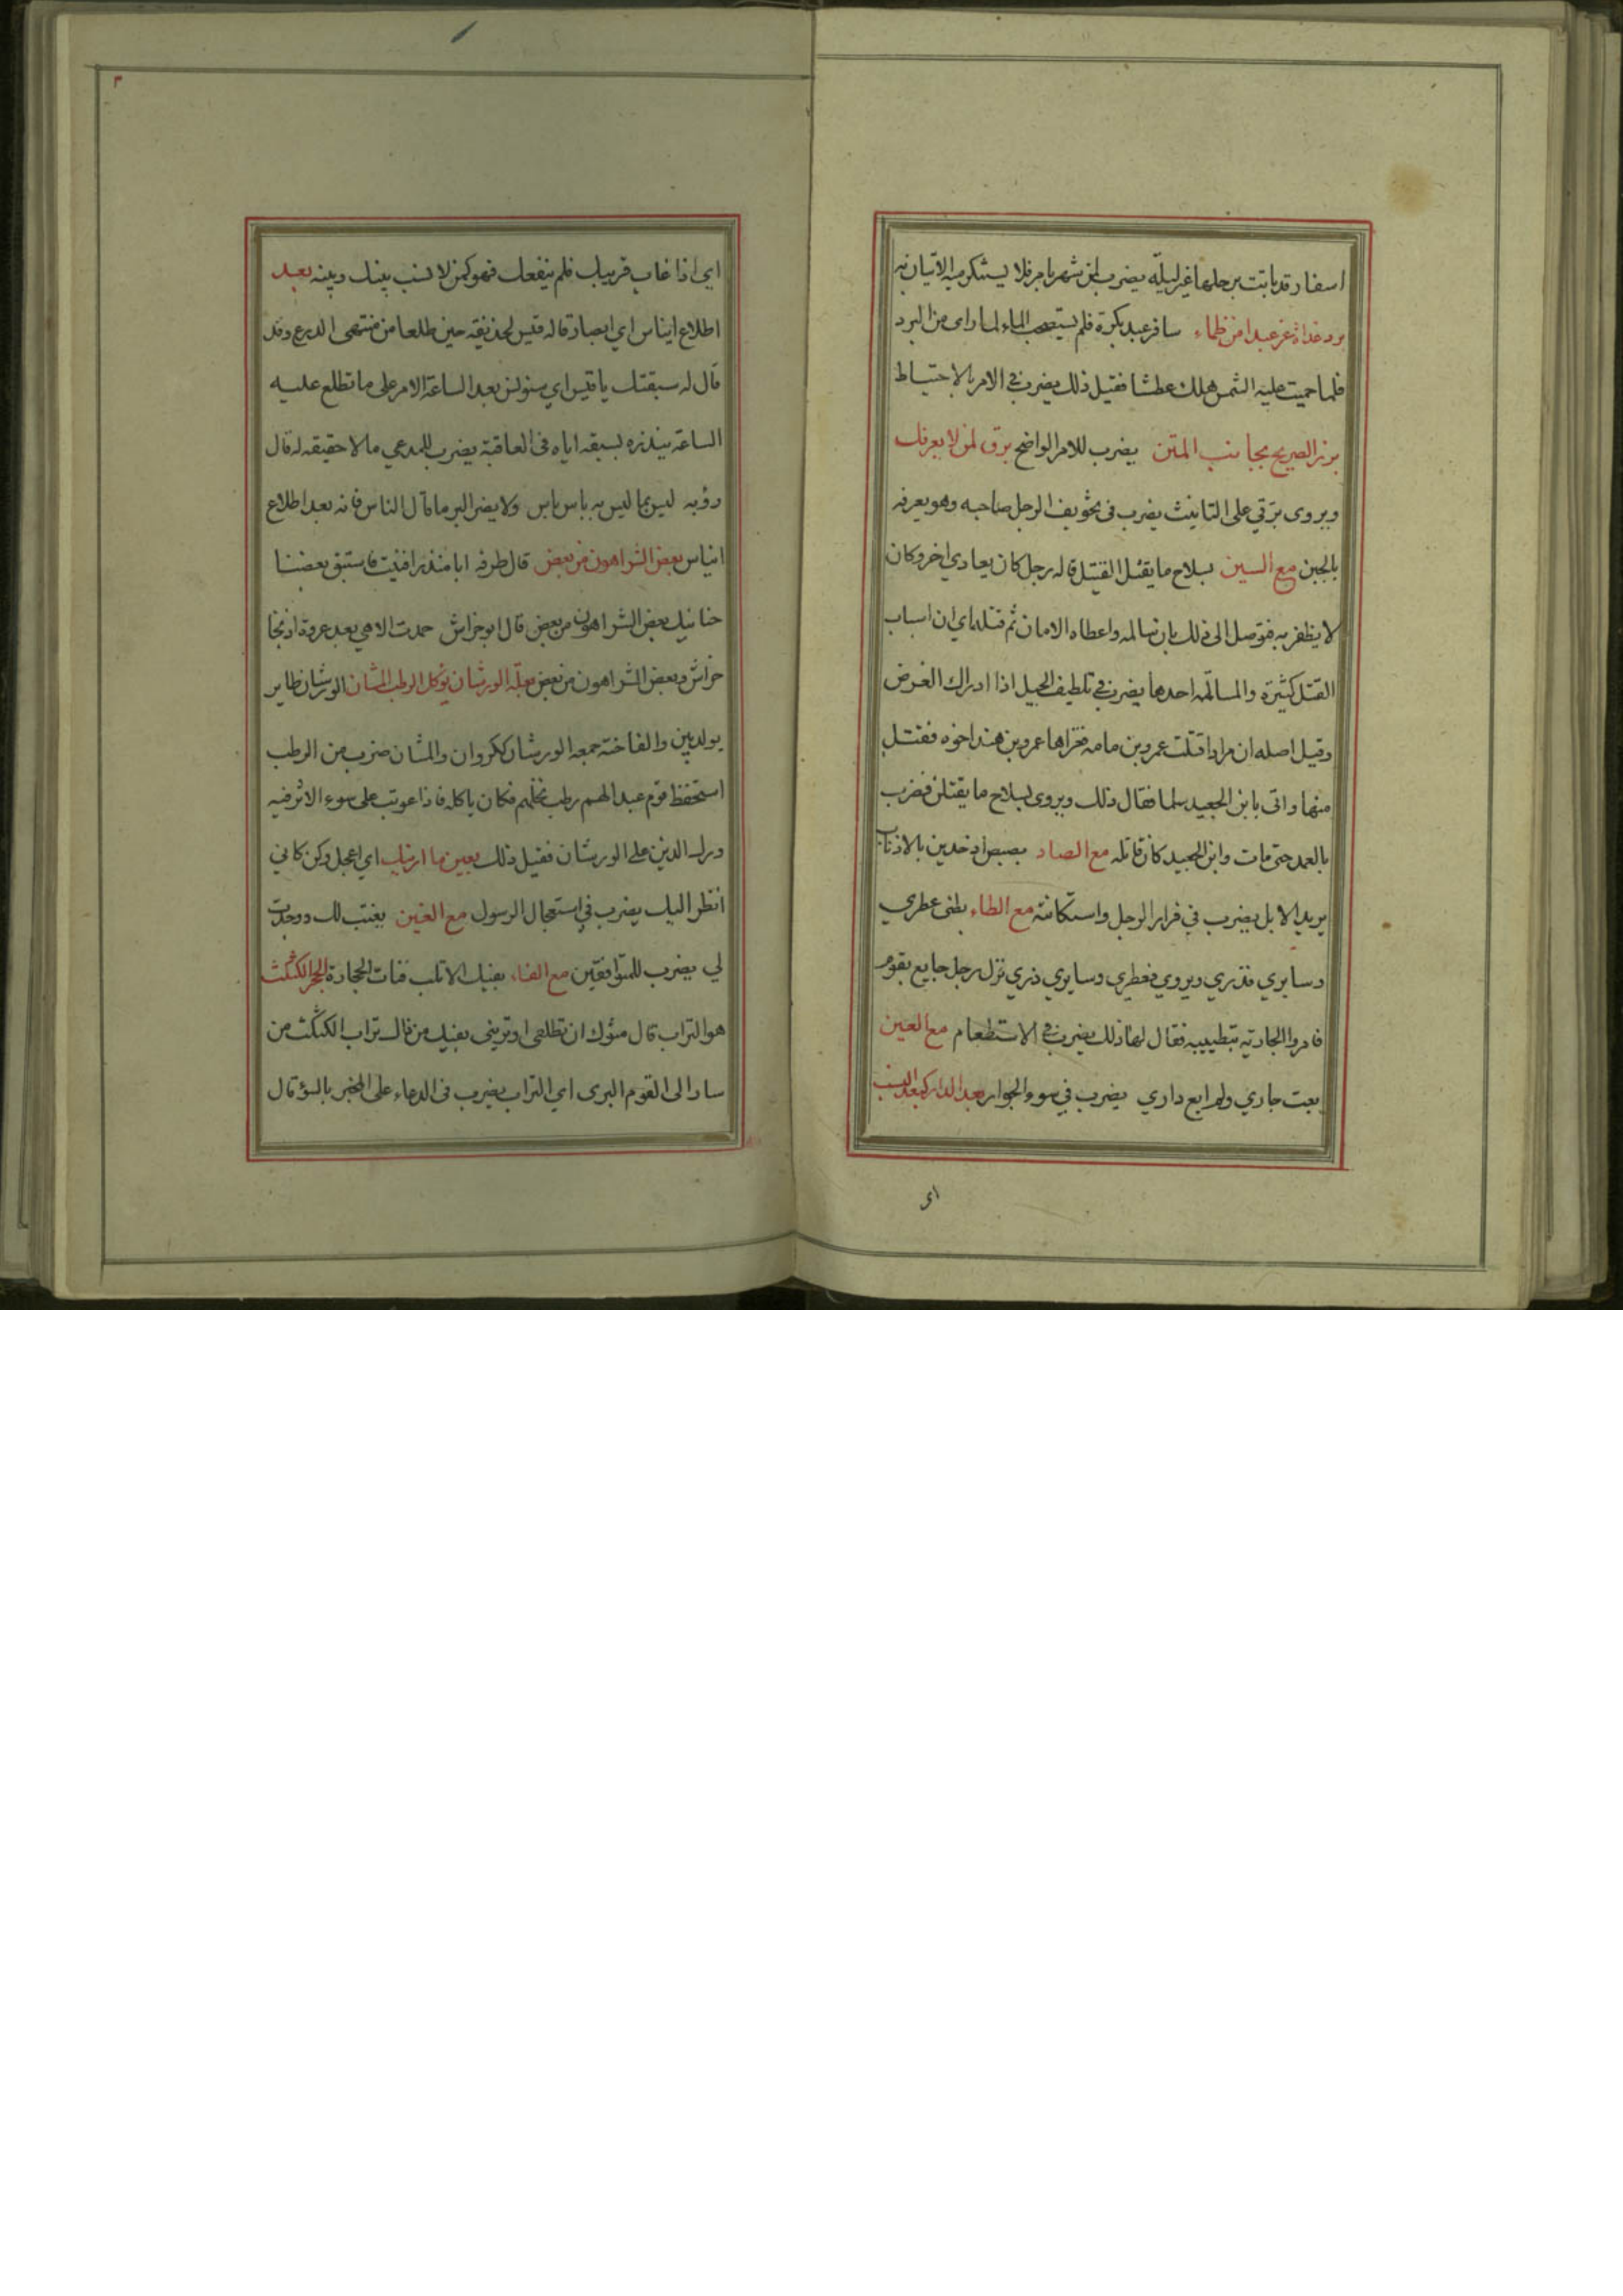 اسفار قد باتت برحلها غير ليلة يضرب لمن شهر بامر فلا يستنكر منه الاتيان به
برد غداة غر عبدا من ظماء سافر عبد بكرة فلم يستصحب الماء لما راى من البرد
فلما حميت عليه الشمس هلك عطشا فقيل ذلك يضرب في الامر بالاحتياط
برز الصريح بجانب المتن يضرب للامر الواضح برق لمن لا يعرفك
ويروى برقي على التانيث يضرب في تخويف الرجل صاحبه وهو يعرفه
بالجبن مع السين بسلاح ما يقتل القتيل قاله رجل كان يعادي اخر وكان
لا يظفر به فتوصل الى ذلك بان سالمه واعطاه الامان ثم قتله اي ان اسباب
القتل كثيرة والمسالمة احدها يضرب في تلطيف الحيل اذا ادراك الغرض
وقيل اصله ان مرادا قتلت عمرو بن مامه فغزاها عمرو بن هند اخوه فقتل
منها واتى بابن الجعيد سلما فقال ذلك ويروى بسلاح ما يقتلن فضرب
بالعمد حتى مات وابن الجعيد كان قاتله مع الصاد بصبصن اذ حدين بالاذناب
يريد الابل يضرب في فرار الرجل واستكانته مع الطاء بطني عطري
وسايري فذري ويروي فعطري وسايري ذري نزل رجل جايع بقوم
فامروا الجارية بتطييبه فقال لها ذلك يضرب في الاستطعام مع العين
بعت جاري ولم ابع داري يضرب في سوء الجوار بعد الدار كبعد النسب
اى
٣
اي اذا غاب قريبك فلم ينفعك فهو كمن لا نسب بينك وبينه بعد
اطلاع ايناس اي ابصار قاله قيس لحذيفه حين طلعا من منتهى الذرع وقد
قال له سبقتك يا قيس اي سنولن بعد الساعة الامر على ما تطلع عليه
الساعة ينذره بسبقه اياه في العاقبة يضرب للمدعي ما لا حقيقه له قال
رؤبه ليس بما ليس به باس باس ولا يضر البر ما قال الناس فانه بعد اطلاع
ايناس بعض الشر اهون من بعض قال طرفه ابا منذر افنيت فاستبق بعضنا
حنانيك بعض الشر اهون من بعض قال ابو خراش حمدت الاهي بعد عروة اذ نجا
خراش وبعض الشر اهون من بعض بعلة الورشان يوكل الرطب المشان الورشان طاير
يولد بين والفاخته جمعه الورشان ككروان والمشان ضرب من الرطب
استحفظ قوم عبدا لهم رطب نخلهم فكان ياكله فاذا عوتب على سوء الاثر فيه
ورك الذنب على الورشان فقيل ذلك بعين ما ارينك اي اعجل وكن كاني
انظر اليك يضرب في استعجال الرسول مع الغين بغيت لك ووجدت
لي يضرب للمتوافقين مع الفاء بفيك الاثلب فتات الحجارة الحجر الكثكث
هو التراب قال ان تطلعي او تريني بفيك من تراب الكثكث من
سار الى القوم البرى اي التراب يضرب في الدعاء على المخبر بالسوء قال